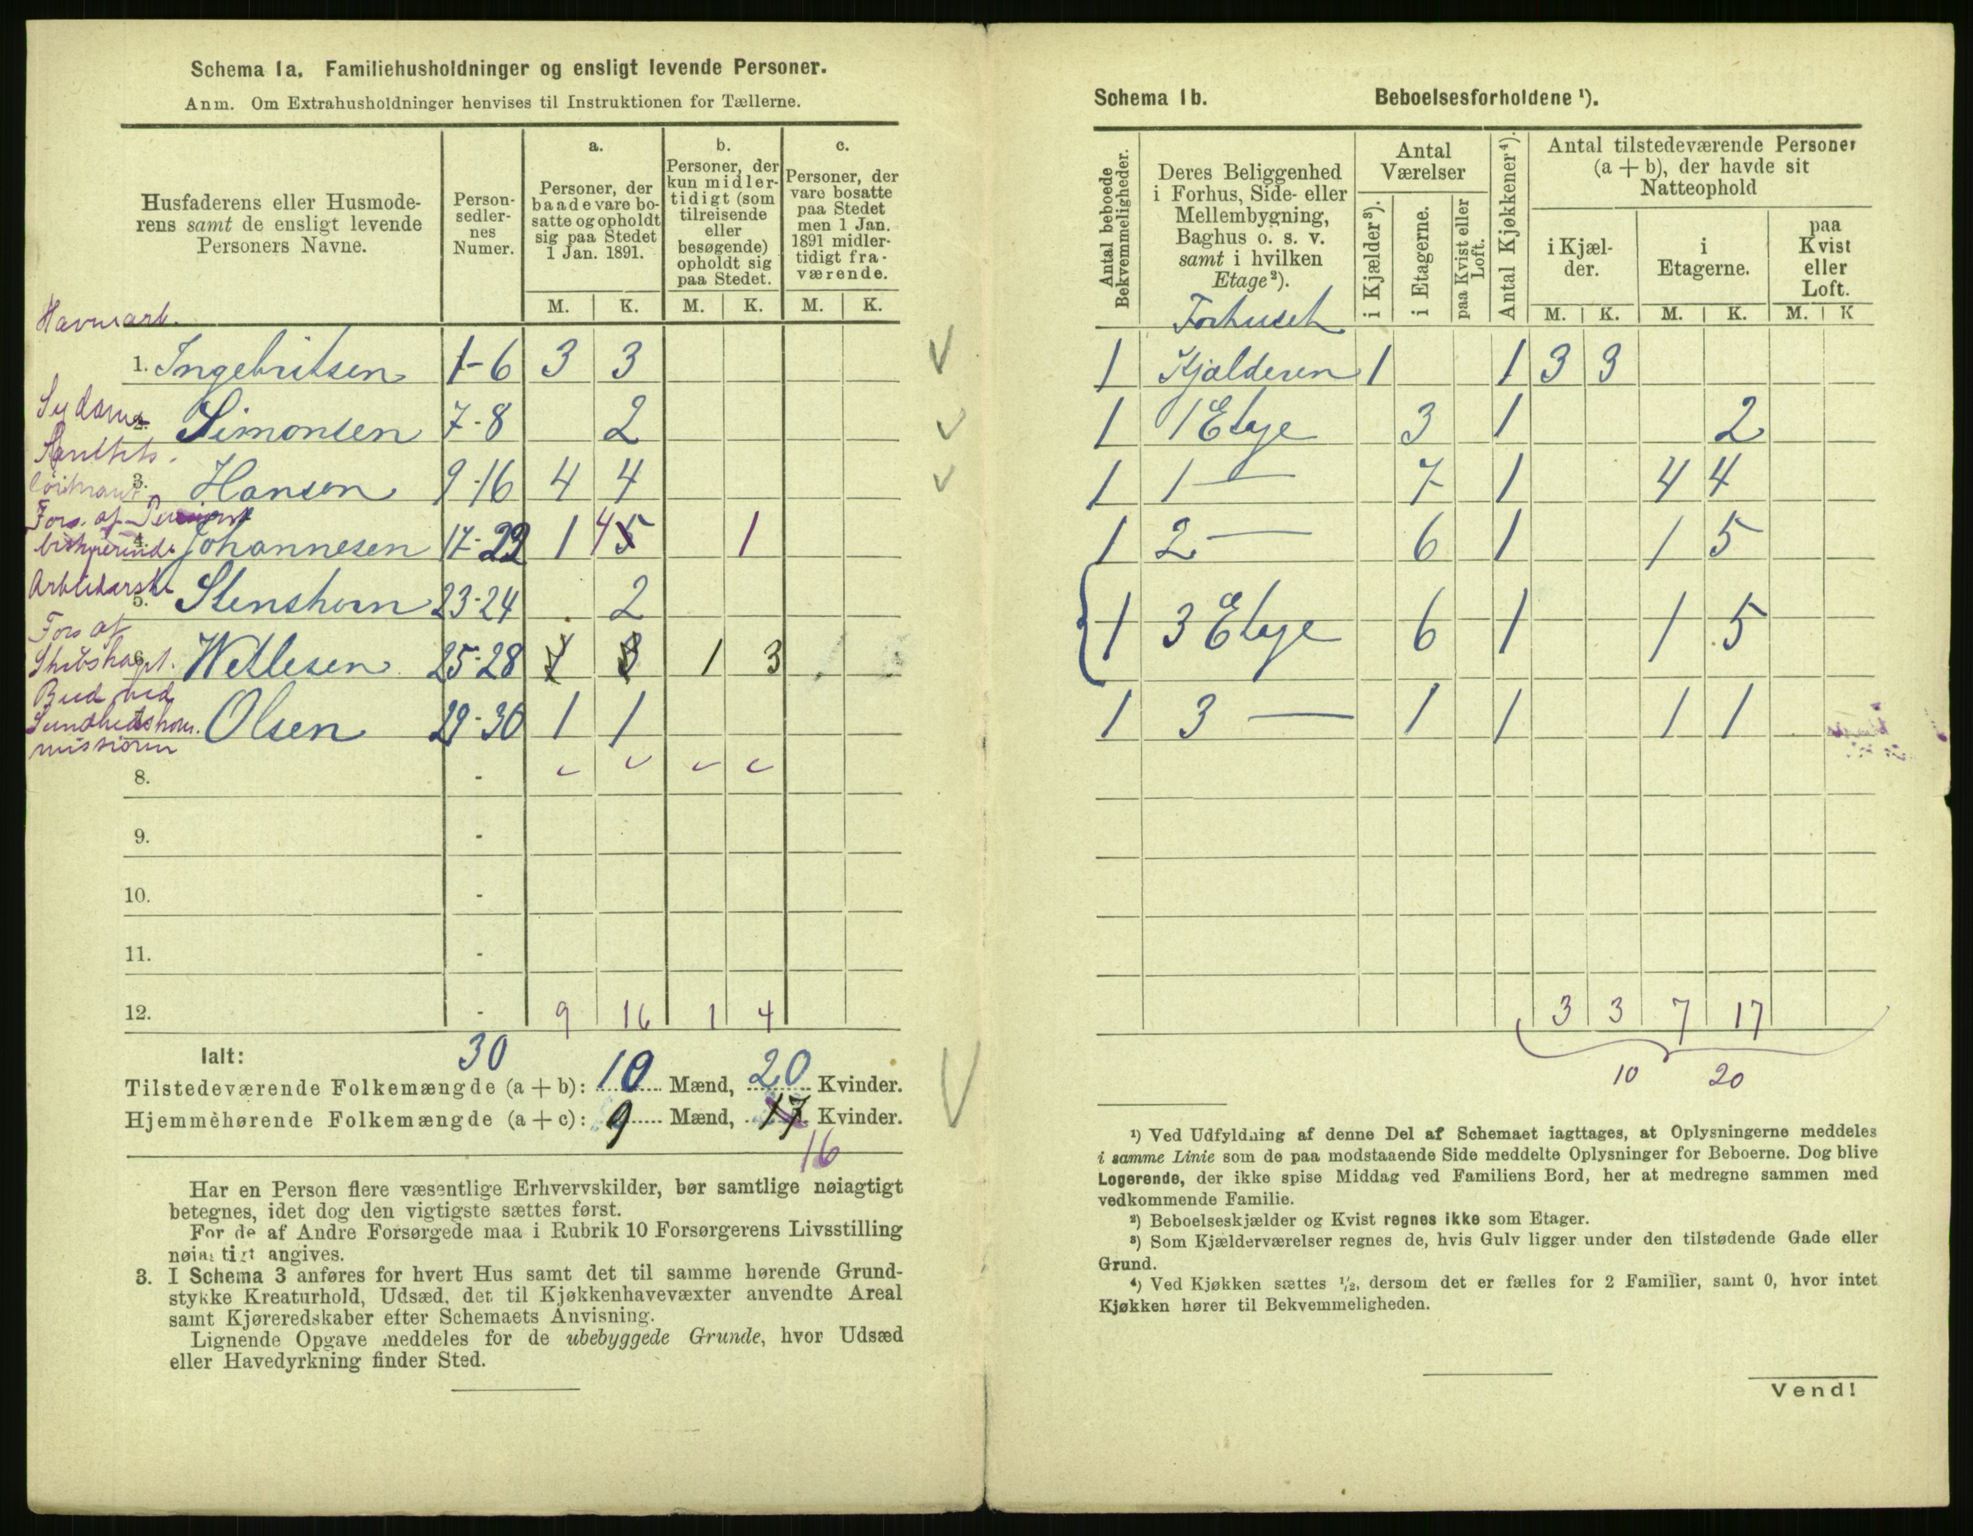 Schema 1a. Familiehusholdninger og ensligt levende Personer.
Anm. Om Extrahusholdninger henvises til Instruktionen for Tællerne.
Husfaderens eller Husmode-
rens samt de ensligt levende
Personers Navne.
Person-
sedler-
nes
Numer.
a.
Personer, der
baade vare bo-
satte og opholdt
sig paa Stedet
1 Jan. 1891.
b.
Personer, der
kun midler-
tidigt (som
tilreisende
eller
besøgende)
opholdt sig
paa Stedet.
c.
Personer, der
vare bosatte
paa Stedet
men 1 Jan.
1891 midler-
tidigt fra-
værende.
M. K. M. K. M. K.
Havnearb.
1. Ingebritsen 1-6 3 3
Sydame
2. Simonsen 7-8 2
3. Hansen 9-16 4 4
Fors. af
4. Johannesen 17-22 1 4 5 1
5. Stenshorn 23-24 2
Fors af
Skibskapt.
6. Wetlesen 25-28 1 3
Bud ved
Sundhedskom-
missionen
7. Olsen 29-30 1 1
8. -
9. -
10. -
11. -
12. - 9 16 1 4
Ialt: 30
Tilstedeværende Folkemængde (a + b): 10 Mænd, 20 Kvinder.
Hjemmehørende Folkemængde (a + c): 9 Mænd, 17 Kvinder.
16
Har en Person flere væsentlige Erhvervskilder, bør samtlige nøiagtigt
betegnes, idet dog den vigtigste sættes først.
For de af Andre Forsørgede maa i Rubrik 10 Forsørgerens Livsstilling
nøiagtigt angives.
3. I Schema 3 anføres for hvert Hus samt det til samme hørende Grund-
stykke Kreaturhold, Udsæd, det til Kjøkkenhavevæxter anvendte Areal
samt Kjøreredskaber efter Schemaets Anvisning.
Lignende Opgave meddeles for de ubebyggede Grunde, hvor Udsæd
eller Havedyrkning finder Sted.
Schema 1b. Beboelsesforholdene ¹).
Antal beboede
Bekvemmeligheder.
Deres Beliggenhed
i Forhus, Side- eller
Mellembygning,
Baghus o. s. v.
samt i hvilken
Etage ²).
Antal
Værelser
i Kjælder ³).
i Etagerne.
paa Kvist eller
Loft.
Antal Kjøkkener ⁴).
Antal tilstedeværende Personer
(a + b), der havde sit
Natteophold
i Kjæl-
der.
i
Etagerne.
paa
Kvist
eller
Loft.
M. K. M. K. M. K
Forhuset
1 Kjælderen 1 1 3 3
1 1 Etage 3 1 2
1 1 — 7 1 4 4
1 2 — 6 1 1 5
1 3 Etage 6 1 1 5
1 3 — 1 1 1 1
3 3 7 17
10 20
¹) Ved Udfyldning af denne Del af Schemaet iagttages, at Oplysningerne meddeles
i samme Linie som de paa modstaaende Side meddelte Oplysninger for Beboerne. Dog blive
Logerende, der ikke spise Middag ved Familiens Bord, her at medregne sammen med
vedkommende Familie.
²) Beboelseskjælder og Kvist regnes ikke som Etager.
³) Som Kjælderværelser regnes de, hvis Gulv ligger under den tilstødende Gade eller
Grund.
⁴) Ved Kjøkken sættes ½, dersom det er fælles for 2 Familier, samt 0, hvor intet
Kjøkken hører til Bekvemmeligheden.
Vend!